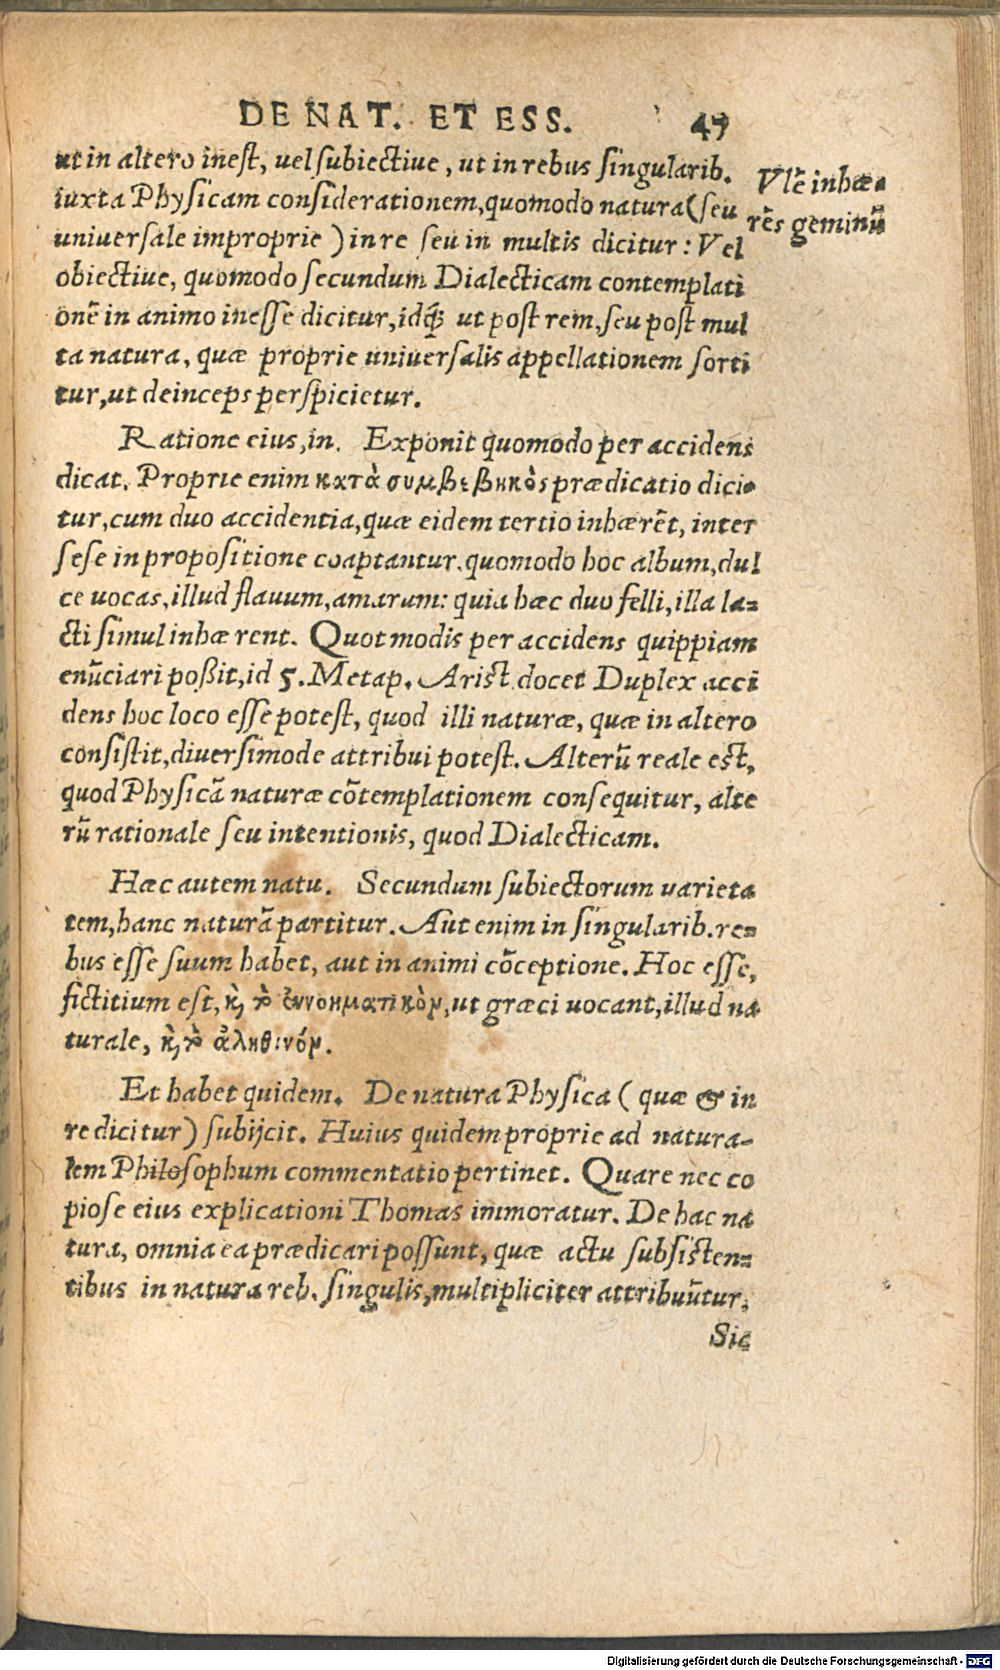 DE NAT. ET ESS. 47
ut in altero inest, vel subiective, ut in rebus singularib.
iuxta Physicam considerationem, quomodo natura (seu
universale improprie) in re seu in multis dicitur: Vel
obiective, quomodo secundum Dialecticam contemplati
onē in animo inesse dicitur, idq́; ut post rem, seu post mul
ta natura, quæ proprie universalis appellationem sorti
tur, ut deinceps perspicietur.
Vlē inhæ=
rēs geminū
Ratione eius, in. Exponit quomodo per accidens
dicat. Proprie enim κατὰ συμβεβηκὸς prædicatio dici=
tur, cum duo accidentia, quæ eidem tertio inhærēt, inter
sese in propositione coaptantur. quomodo hoc album, dul
ce vocas, illud flavum, amarum: quia hæc duo felli, illa la=
cti simul inhærent. Quot modis per accidens quippiam
enūciari poßit, id 5. Metap. Arist. docet Duplex acci
dens hoc loco esse potest, quod illi naturæ, quæ in altero
consistit, diversimode attribui potest. Alterū reale est,
quod Physicā naturæ cōtemplationem consequitur, alte
rū rationale seu intentionis, quod Dialecticam.
Hæc autem natu. Secundum subiectorum varieta
tem, hanc naturā partitur. Aut enim in singularib. re=
bus esse suum habet, aut in animi cōceptione. Hoc esse,
fictitium est, κὶ τὸ ἐννοηματικὸν, ut græci vocant, illud na
turale, κὶ τὸ ἀληθινόν.
Et habet quidem. De natura Physica (quæ & in
re dicitur) subijcit. Huius quidem proprie ad natura-
lem Philosophum commentatio pertinet. Quare nec co
piose eius explicationi Thomas immoratur. De hac na
tura, omnia ea prædicari possunt, quæ actu subsisten=
tibus in natura reb. singulis, multipliciter attribuūtur.
Sic
Digitalisierung gefördert durch die Deutsche Forschungsgemeinschaft - DFG